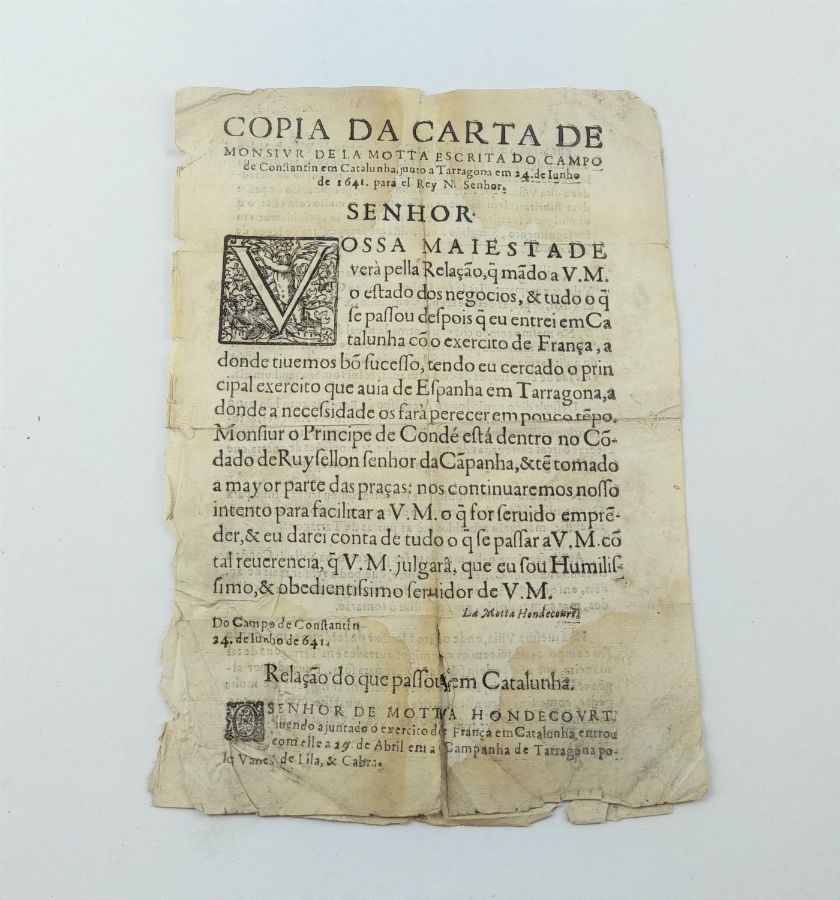 COPIA DA CARTA DE
MONSIVR DE LA MOTTA ESCRITA DO CAMPO
de Conſtantin em Catalunha, junto a Tarragona em 24. de Iunho
de 1641. para el Rey N. Senhor.
SENHOR.
VOSSA MAIESTADE
verà pella Relação, q̃ mãdo a V.M.
o eſtado dos negocios, & tudo o q̃
ſe paſſou deſpois q̃ eu entrei em Ca
talunha cõ o exercito de França, a
donde tiuemos bõ ſuceſſo, tendo eu cercado o prin
cipal exercito que auia de Eſpanha em Tarragona, a
donde a neceſsidade os farà perecer em pouco tẽpo.
Monſiur o Principe de Condé eſtá dentro no Cõ-
dado de Ruyſellon ſenhor da Cãpanha, & tẽ tomado
a mayor parte das praças: nos continuaremos noſſo
intento para facilitar a V.M. o q̃ for ſeruido emprẽ-
der, & eu darei conta de tudo o q̃ ſe paſſar a V.M. cõ
tal reuerencia, q̃ V.M. julgarâ, que eu ſou Humiliſ-
ſimo, & obedientiſsimo ſeruidor de V.M.
La Motta Hondecourt.
Do Campo de Conſtantin
24. de Iunho de 641.
Relação do que paſſou em Catalunha.
O SENHOR DE MOTTA HONDECOVRT.
auendo ajuntado o exercito de França em Catalunha, entrou
com elle a 29 de Abril em a Campanha de Tarragona po-
de Lila, & Cabra.